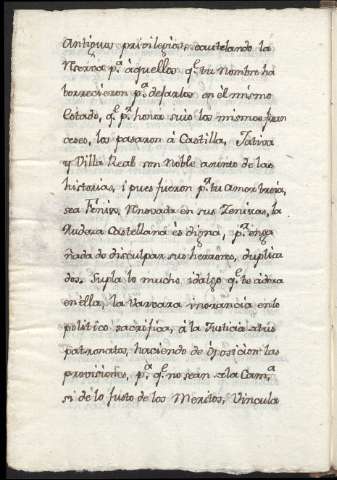 Antiguos privilegios, cautelando la
Nserva pª. áquellos qᵉ. tu Nombre há
borrecieron pª. dejarlos en èl mismo
Estado, qᵉ. pª. honra suia los mismos fran
ceses, los pasaron á Castilla, Jativa
y Villa Real son Noble asunto de las
historias, i pues fueron pª. tu amor troia,
sea Fenix, Rnovada en sus Zenizas, la
Rudeza Castellana ès digna, pª. enga
ñada de disculpar sus herrores, duplica
dos, supla lo mucho idalgo qᵉ. te adora
en ella, la varvara inorancia en lo
politico sacrifica, á la Justicia atus
patronatos, haciendo de òposicion las
provisiones, pª. qᵉ. no sean ala Camª.
si de lo justo de los Meritos, Vincula